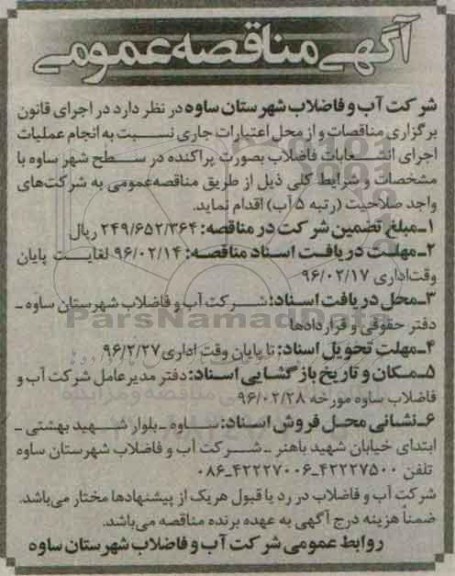 آگهی مناقصه عمومی
شرکت آب و فاضلاب شهرستان ساوه در نظر دارد در اجرای قانون
برگزاری مناقصات و از محل اعتبارات جاری نسبت به انجام عملیات
اجرای انشعابات فاضلاب بصورت پراکنده در سطح شهر ساوه با
مشخصات و شرایط کلی ذیل از طریق مناقصه عمومی به شرکت‌های
واجد صلاحیت (رتبه ۵ آب) اقدام نماید.
۱ـ مبلغ تضمین شرکت در مناقصه: ۲۴۹/۶۵۲/۳۶۴ ریال
۲ـ مهلت دریافت اسناد مناقصه: ۹۶/۰۲/۱۴ لغایت پایان
وقت اداری ۹۶/۰۲/۱۷
۳ـ محل دریافت اسناد: شرکت آب و فاضلاب شهرستان ساوه ـ
دفتر حقوقی و قراردادها
ParsNamadData
۴ـ مهلت تحویل اسناد: تا پایان وقت اداری ۹۶/۲/۲۷
۵ـ مکان و تاریخ بازگشایی اسناد: دفتر مدیرعامل شرکت آب و
فاضلاب ساوه مورخه ۹۶/۰۲/۲۸
۶ـ نشانی محل فروش اسناد: ساوه ـ بلوار شهید بهشتی ـ
ابتدای خیابان شهید باهنر ـ شرکت آب و فاضلاب شهرستان ساوه
تلفن ۴۲۲۲۷۵۰۰ـ۴۲۲۲۷۰۰۶ـ۰۸۶
شرکت آب و فاضلاب در رد یا قبول هر یک از پیشنهادها مختار می‌باشد.
ضمناً هزینه درج آگهی به عهده برنده مناقصه می‌باشد.
روابط عمومی شرکت آب و فاضلاب شهرستان ساوه